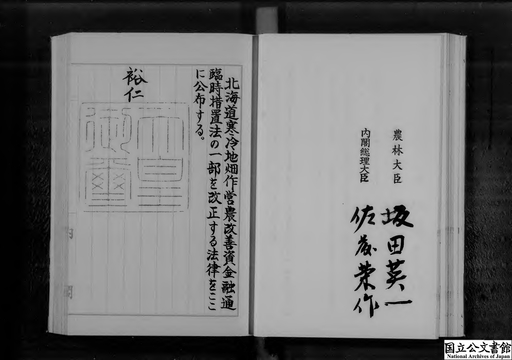 農林大臣
坂田英一
内閣総理大臣
佐藤栄作
北海道寒冷地畑作営農改善資金融通
臨時措置法の一部を改正する法律をここ
に公布する。
裕仁
天皇
御璽
国立公文書館
National Archives of Japan